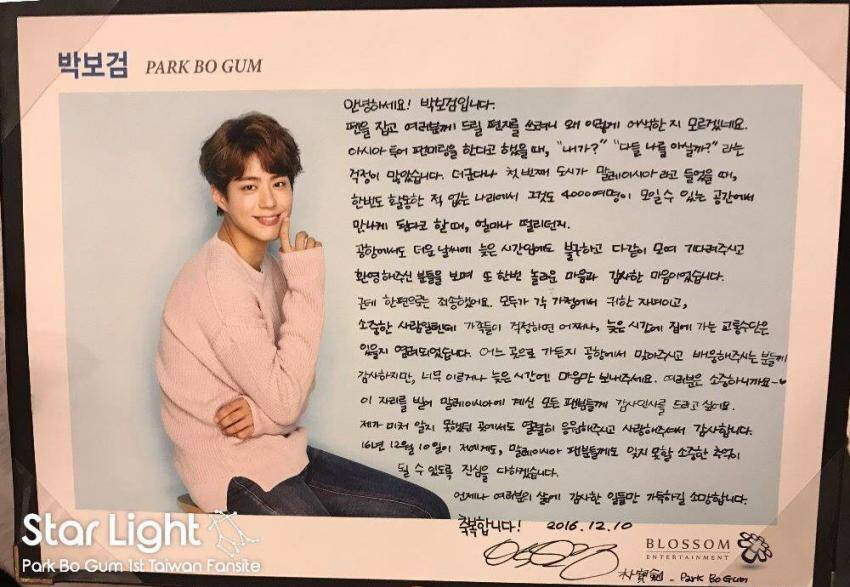 박보검 PARK BO GUM
안녕하세요! 박보검입니다.
펜을 잡고 여러분께 드릴 편지를 쓰려니 왜 이렇게 어색한 지 모르겠네요.
아시아 투어 팬미팅을 한다고 했을 때, "내가?" "다들 나를 아실까?" 라는
걱정이 많았습니다. 더군다나 첫 번째 도시가 말레이시아 라고 들었을 때,
한번도 활동한 적 없는 나라에서 그것도 4000여명이 모일 수 있는 공간에서
만나게 된다고 할 때, 얼마나 떨리던지.
공항에서도 더운 날씨에 늦은 시간임에도 불구하고 다같이 모여 기다려주시고
환영해주신 분들을 보며 또 한번 놀라운 마음과 감사한 마음이었습니다.
근데 한편으론 죄송했어요. 모두가 각 가정에서 귀한 자녀이고,
소중한 사람일텐데 가족들이 걱정하면 어쩌나, 늦은 시간에 집에 가는 교통수단은
있을지 염려되었습니다. 어느 곳으로 가든지 공항에서 맞아주시고 배웅해주시는 분들께
감사하지만, 너무 이르거나 늦은 시간엔 마음만 보내주세요. 여러분은 소중하니까요~♥
이 자리를 빌어 말레이시아에 계신 모든 팬분들께 감사인사를 드리고 싶어요.
제가 미처 알지 못했던 곳에서도 열렬히 응원해주시고 사랑해주셔서 감사합니다.
16년 12월 10일이 저에게도, 말레이시아 팬분들께도 잊지 못할 소중한 추억이
될 수 있도록 진심을 다하겠습니다.
언제나 여러분의 삶에 감사한 일들만 가득하길 소망합니다.
축복합니다! 2016.12.10
BLOSSOM
ENTERTAINMENT
朴寶劍 - Park Bo Gum
Star Light
Park Bo Gum 1st Taiwan Fansite